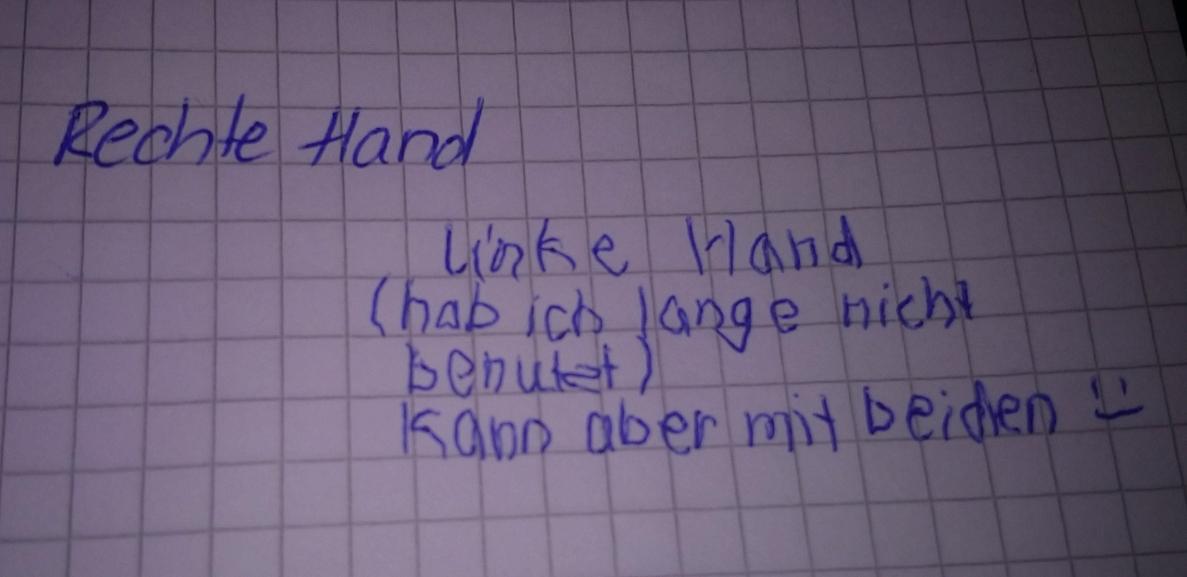 Rechte Hand
Linke Hand
(hab ich lange nicht
benutzt)
Kann aber mit beiden :)